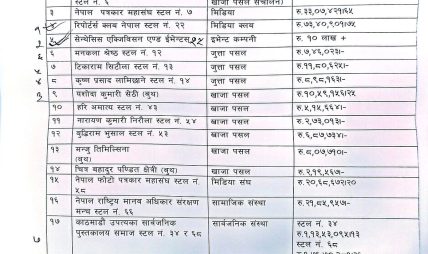 स्टल नं. ६ खाजा पसल संचालन)
३ नेपाल पत्रकार महासंघ स्टल नं. ७ मिडिया रु.३३,०७,४२१।६५
४ रिपोर्टर्स क्लब नेपाल स्टल नं. २२ मिडिया क्लब रु.७३,४०,९०१।७५
५ सेन्थेसिस एक्जिविसन एण्ड ईभेन्टस इभेन्ट कम्पनी रु. १० लाख +
६ मनकला श्रेष्ठ स्टल नं. १२ जुत्ता पसल रु.७,४६,०२३।-
७ टिकाराम सिटौला स्टल नं. १३ जुत्ता पसल रु.११,८०,६२५।-
८ कृष्ण प्रसाद लामिछाने स्टल नं. १४ जुत्ता पसल रु.८,९८,१६३।-
९ यशोदा कुमारी सेठी (बुथ) खाजा पसल रु.१०,५९,१५६।२५
१० हरि अमात्य स्टल नं. ४३ खाजा पसल रु.५,१५,६६४।-
११ नारायण कुमारी निरौला स्टल नं. ५४ खाजा पसल रु.२,७३,०१३।-
१२ बुद्धिराम भुसाल स्टल नं. ५३ खाजा पसल रु.६,८७,७३४।-
१३ मन्जु तिमिल्सिना खाजा पसल रु.८,०७,७१०।-
(बुथ)
१४ चित्र बहादुर पण्डित क्षेत्री (बुथ) खाजा पसल रु.२,१९,५६७।-
१५ नेपाल फोटो पत्रकार महासंघ स्टल नं. मिडिया संघ रु.२०,६८,६७२।२०
५८
१६ नेपाल राष्ट्रिय मानव अधिकार संरक्षण सामाजिक संस्था रु.२१,८५,९५७।-
मन्च स्टल नं. ६६
१७ काठमाडौं उपत्यका सार्वजनिक सार्वजनिक संस्था स्टल नं. ३४
पुस्तकालय समाज स्टल नं. ३४ र ६८ रु.१,१३,५३,०९५।१३
७ स्टल नं. ६८